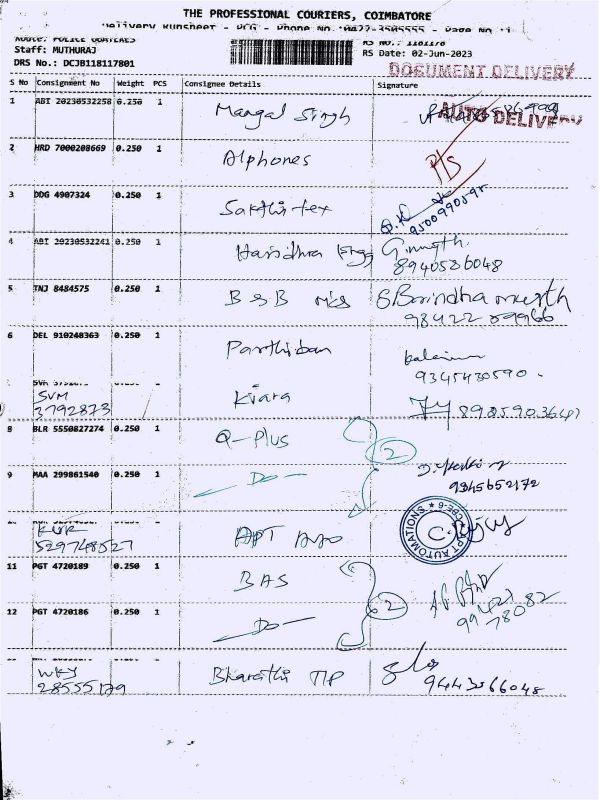 THE PROFESSIONAL COURIERS, COIMBATORE
Delivery Runsheet - PCG - Phone No.:0422-3505555 - Page No.:1
Staff: MUTHURAJ
RS Date: 02-Jun-2023
DRS No.: DCJB118117801
DOCUMENT DELIVERY
S No Consignment No Weight PCS Consignee Details Signature
1 ABI 20230532258 0.250 1 Mangal Singh
AUTO DELIVERY
2 HRD 7000208669 0.250 1 Alphones P/S
3 DDG 4907324 0.250 1 Sakthi tex
9500990595
4 ABI 20230532241 0.250 1
8940586048
5 TNJ 8484575 0.250 1 B S B
98422 89966
6 DEL 910248363 0.250 1 Parthiban
9345430590.
SVM
3792873 Kiara 8985903647
8 BLR 5550827274 0.250 1 Q-Plus
2
9 MAA 299861540 0.250 1 Do
9345652172
KUR
529748527 APT
APT AUTOMATIONS CBE-6
11 PGT 4720189 0.250 1 BAS
2
12 PGT 4720186 0.250 1 Do
99421 78082
WKY
28555179 Bharathi TP
9443566048